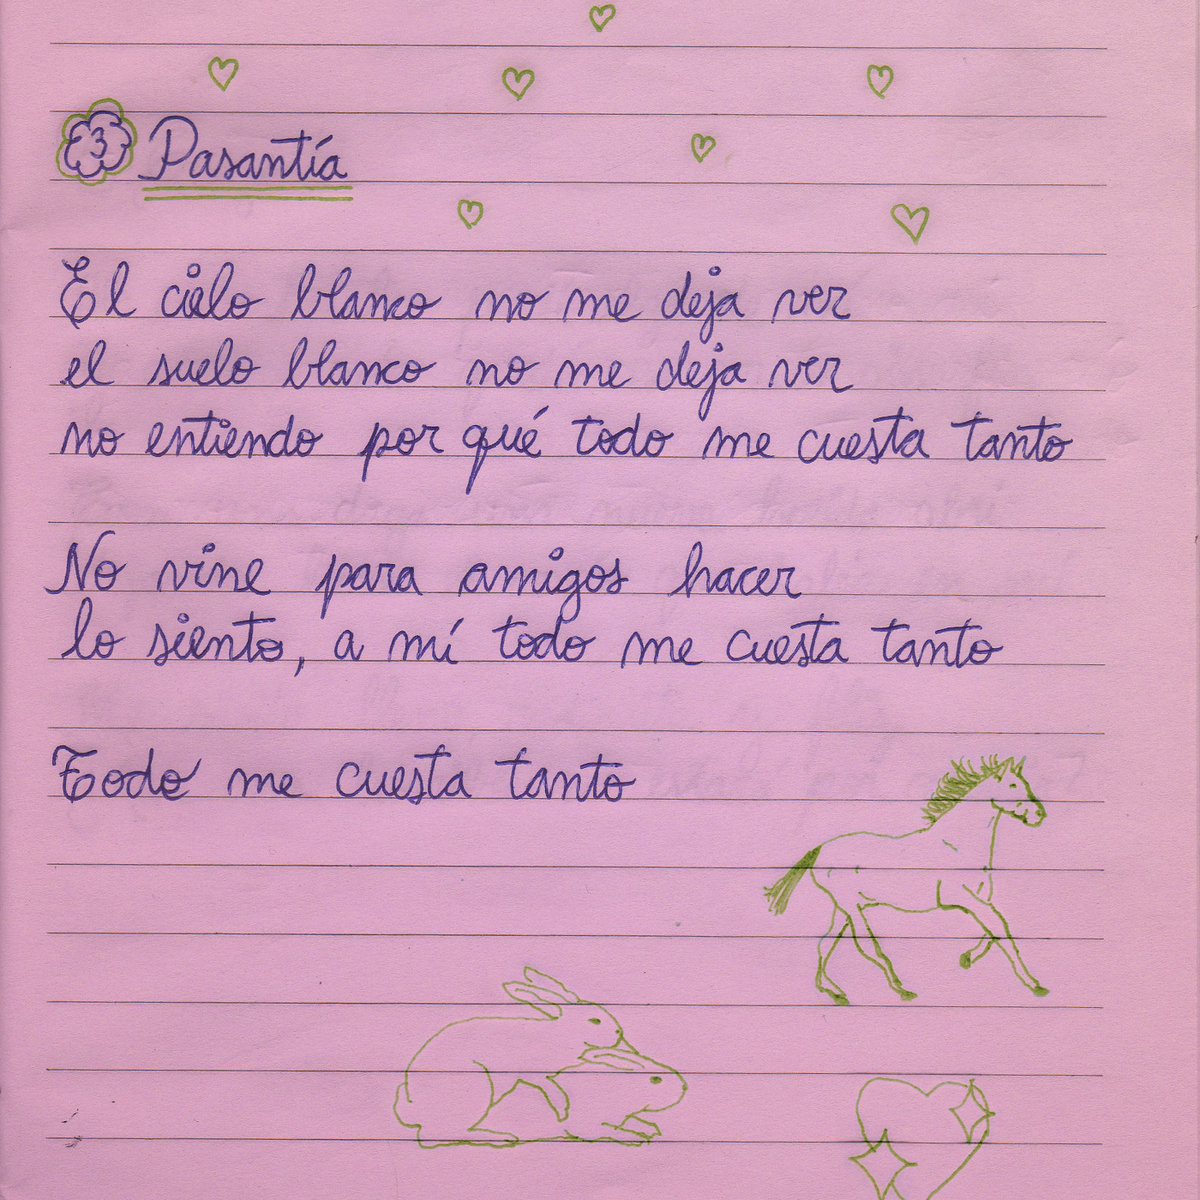 3 Pasantía
El cielo blanco no me deja ver
el suelo blanco no me deja ver
no entiendo por qué todo me cuesta tanto
No vine para amigos hacer
lo siento, a mí todo me cuesta tanto
Todo me cuesta tanto